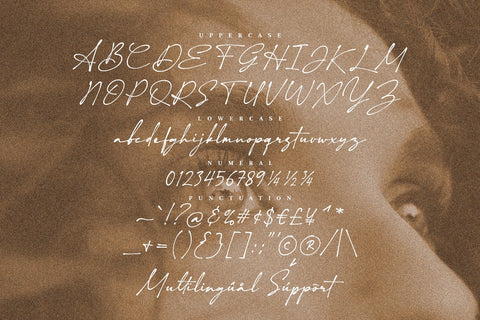 UPPERCASE
ABCDEFGHIJKLM
NOPQRSTUVWXYZ
LOWERCASE
abcdefghijklmnopqrstuvwxyz
NUMERAL
0123456789¼½¾
PUNCTUATION
~`!?@&%#¢$€£¥^*
_+=(){}[]:;"'©®/|\
Multilingûâl Súppört